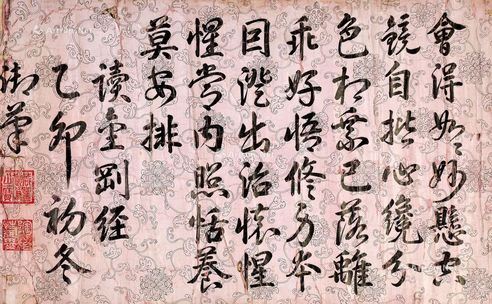 會得如々妙懸空
鏡自揩心纔分
色相業已落離
乖好悟修身本
因澄出治懷惺
惺常內照恬養
莫安排
讀金剛經
乙卯初冬
御筆